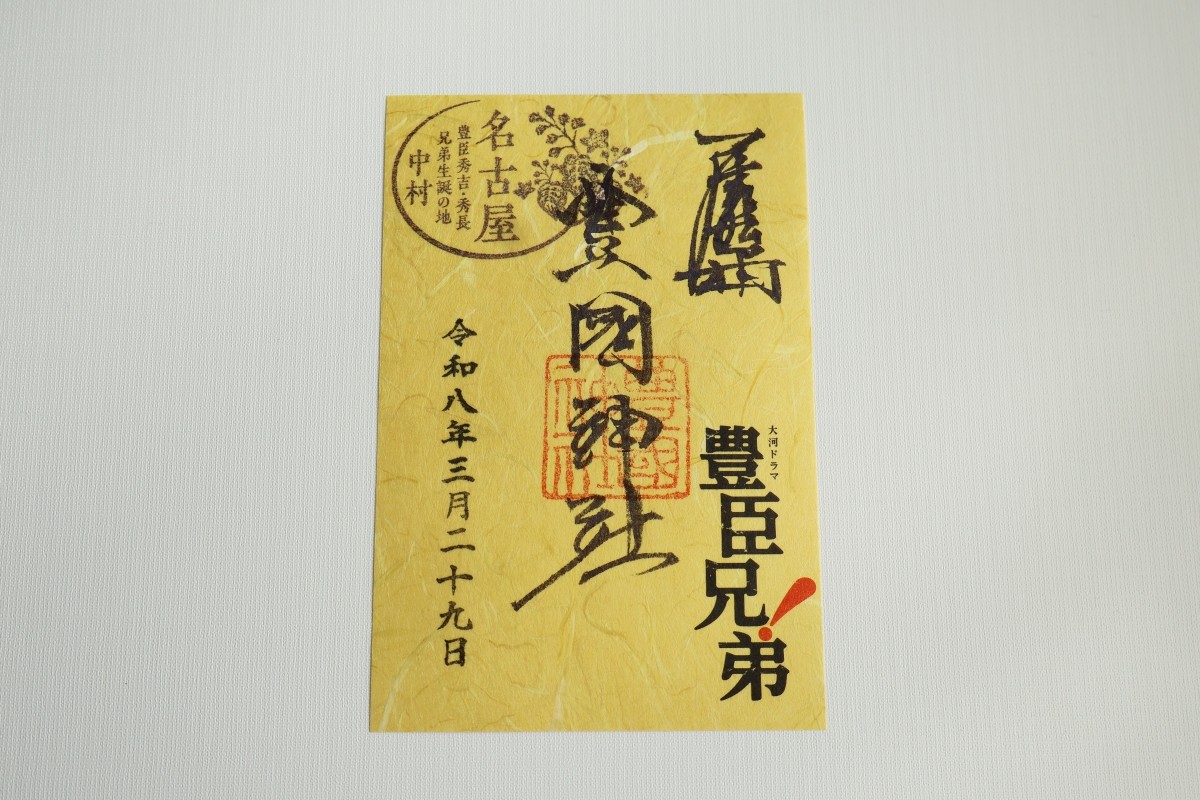 大河ドラマ
豊臣兄弟！
豊國神社
名古屋
豊臣秀吉・秀長
兄弟生誕の地
中村
令和八年三月二十九日